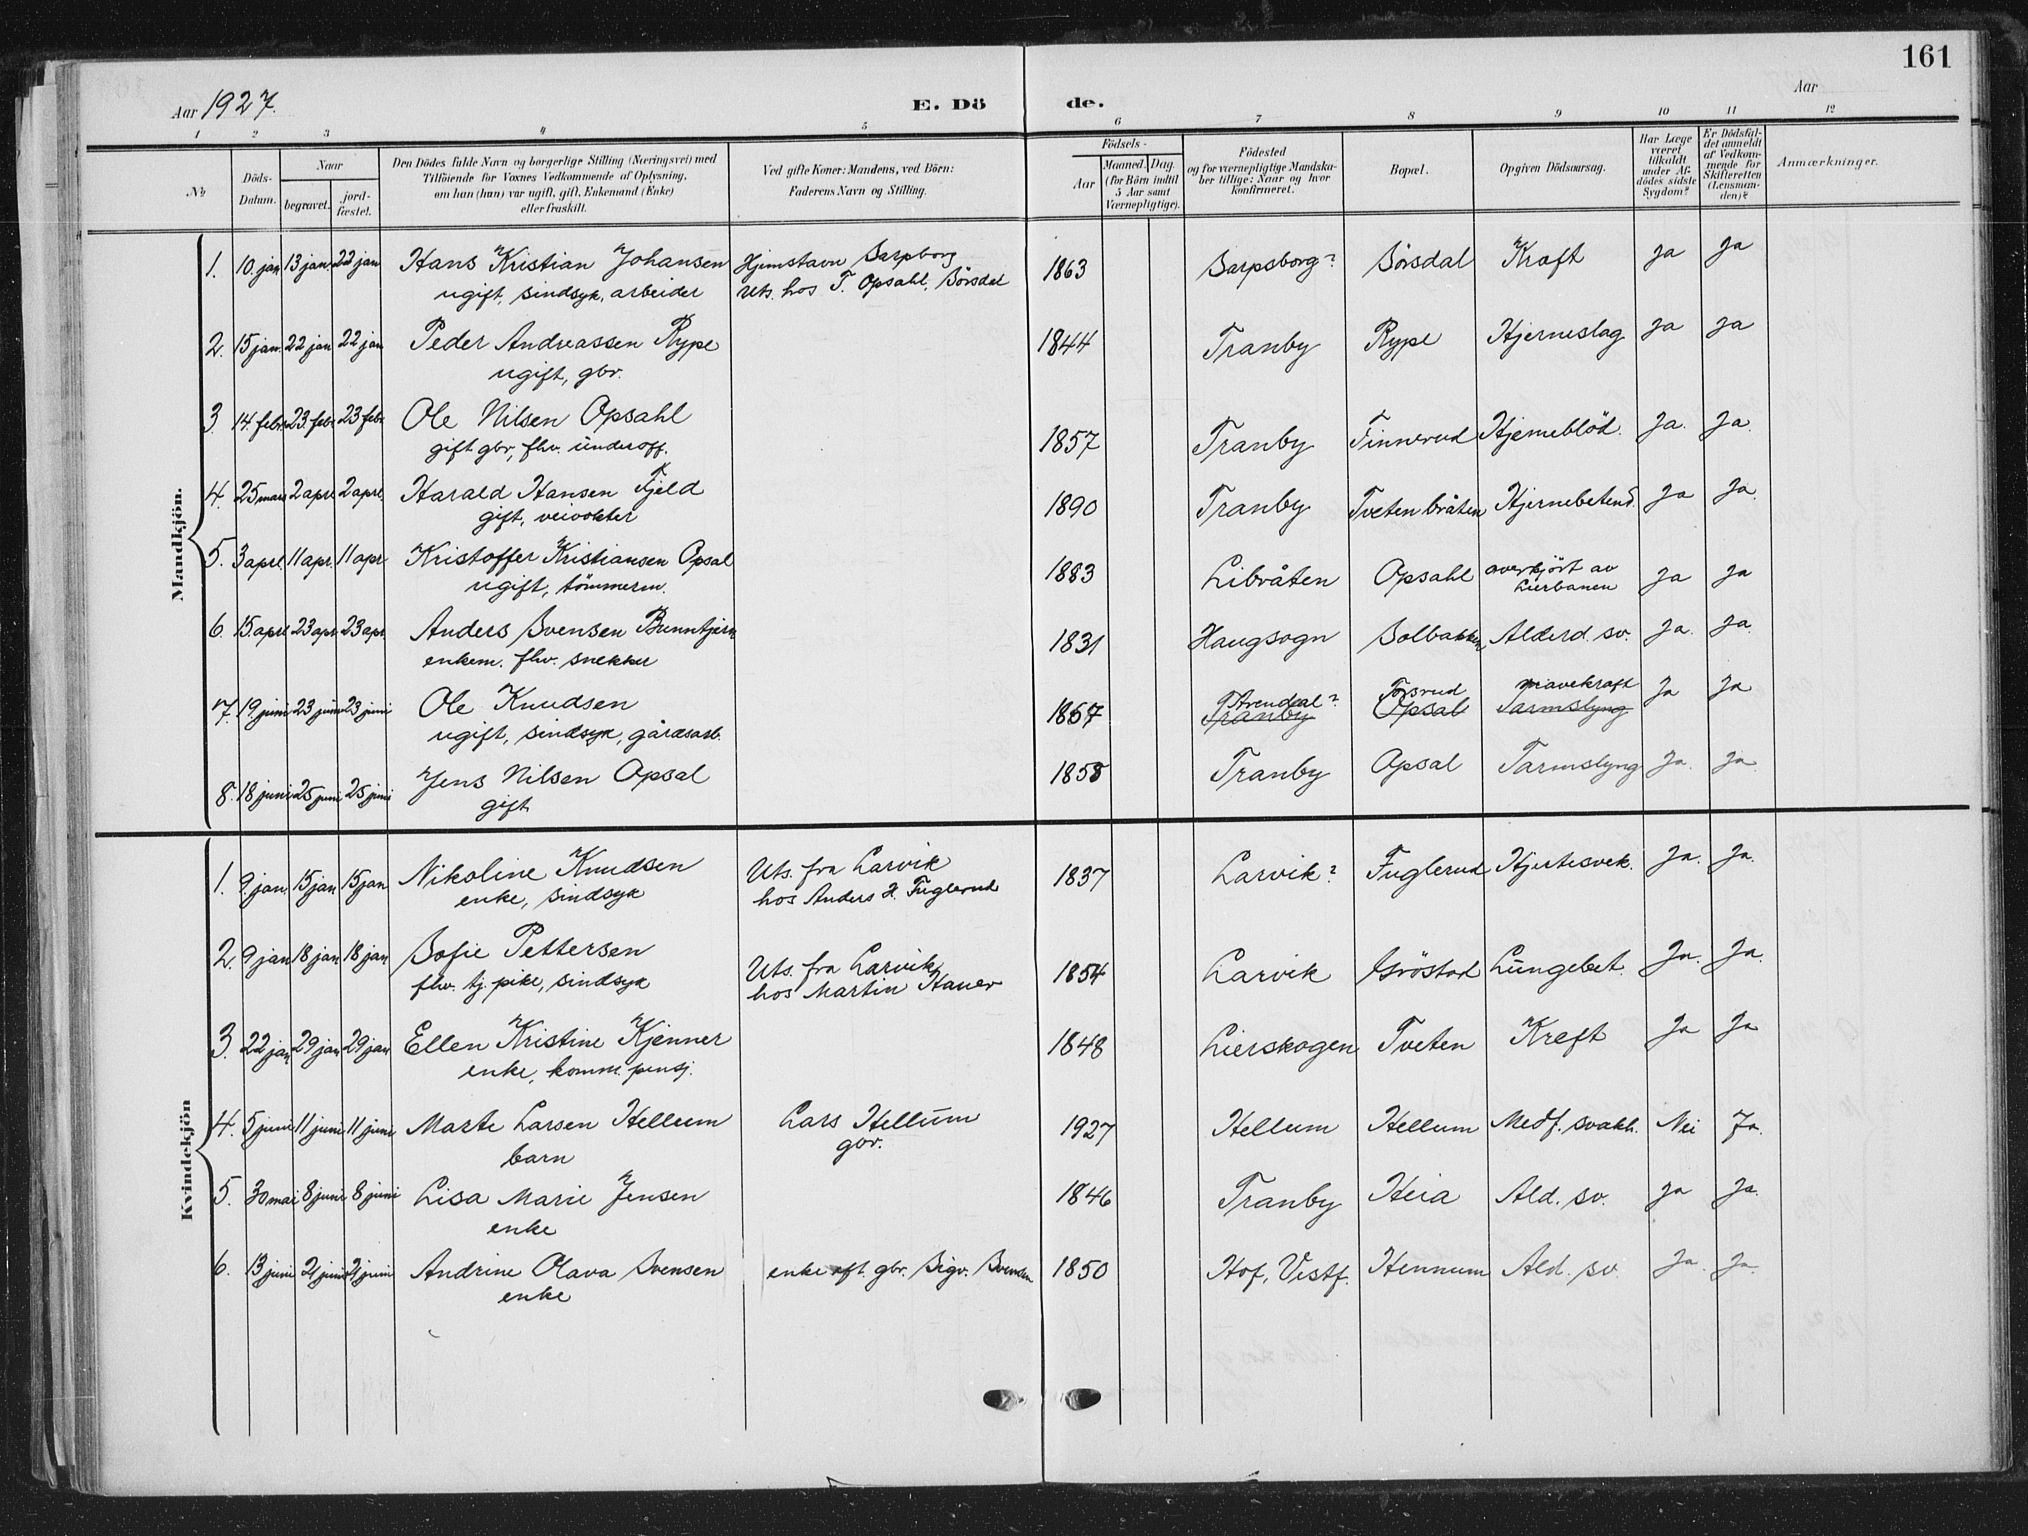 161
Aar 1927. E. Dö de. Aar
1 2 3 4 5 6 7 8 9 10 11 12
No
Döds-Datum.
Naar
begravet.
jord-fæstet.
Den Dödes fulde Navn og borgerlige Stilling (Næringsvei) med
Tilföiende for Voxnes Vedkommende af Oplysning,
om han (hun) var ugift, gift, Enkemand (Enke)
eller fraskilt.
Ved gifte Koner: Mandens, ved Börn:
Faderens Navn og Stilling.
Födsels-
Aar
Maaned. Dag.
(for Börn indtil
5 Aar samt
Værnepligtige).
Födested
og for værnepligtige Mandska-
ber tillige: Naar og hvor
Konfirmeret.
Bopæl.
Opgiven Dödsaarsag.
Har Læge
været
tilkaldt
under Af-
dödes sidste
Sygdom?
Er Dödsfal-
det anmeldt
af Vedkom-
mende for
Skifteretten
(Lensman-
den)?
Anmærkninger.
Mandkjön.
1. 10. jan 13 jan 22 jan Hans Kristian Johansen Hjemstavn Sarpborg 1863 Sarpsborg? Börsdal Kræft ja ja
ugift, sindsyk, arbeider Uts. hos T. Opsahl, Börsdal
2. 15 jan. 22 jan 22 jan Peder Andreassen Rype 1844 Tranby Rype Hjerneslag ja ja
ugift, gbr.
3. 14. febr. 23. febr 23 febr Ole Nilsen Opsahl 1857 Tranby Finnerud Hjerneblöd. Ja. Ja.
gift gbr, fhv. underoff.
4. 25 mars 2 apr 2 apr Harald Hansen Fjeld 1890 Tranby Tveten bråten Hjernebetend. Ja Ja
gift, veivokter
5. 3 apr 11 apr. 11 apr Kristoffer Kristiansen Opsal 1883 Libråten Opsahl overkjört av ja ja
ugift, tömmerm. Lierbanen
6. 15. apr 23 apr. 23 apr. Anders Svensen Bunntjern 1831 Haugsogn Solbakken Alderd. sv. Ja. Ja.
enkem. fhv. snekker
7. 19 juni 23 juni 23 juni Ole Knudsen 1867 Arendal? Tosrud mavekraft Ja Ja
Tranby Opsal Tarmslyng
ugift, sindsyk, gårdsarb.
8. 18 juni 25 juni 25 juni Jens Nilsen Opsal 1858 Tranby Opsal Tarmslyng Ja. Ja.
gift
Kvindekjön
1. 9. jan. 15 jan 15 jan Nikoline Knudsen Uts. fra Larvik 1837 Larvik? Fuglerud Hjertesvek. Ja. Ja.
enke, sindsyk hos Anders H. Fuglerud
2. 9 jan 18 jan 18 jan Sofie Pettersen Uts. fra Larvik 1854 Larvik Gröstad Lungebet. Ja. Ja.
fhv. tj. pike, sindsyk hos Martin Haner
3. 22 jan 29 jan 29 jan Ellen Kristine Kjenner 1848 Lierskogen Tveten Kreft Ja Ja
enke, komm. pensj.
4. 5 juni 11 juni 11 juni Marte Larsen Hellum Lars Hellum 1927 Hellum Hellum Medf. svakh. Nei Ja.
barn gbr.
5. 30 mai 8 juni 8 juni Lisa Marie Jensen 1846 Tranby Heia Ald. sv. Ja Ja.
enke
6. 13 juni 21 juni 21 juni Andrine Olava Svensen enke eft. gbr. Sigv. Svensen 1850 Hof, Vestf. Hennum Ald. sv. Ja Ja.
enke